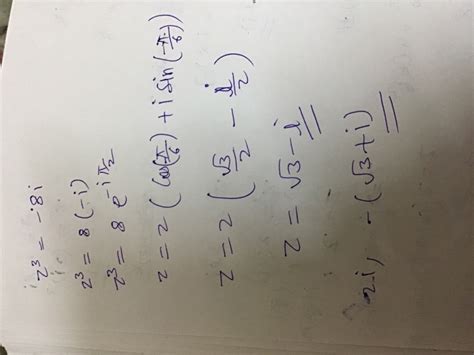 z³ = -8i
z³ = 8(-i)
z³ = 8 e^{-iπ/2}
z = 2 ( cos(π/6) + i sin(-π/6) )
z = 2 ( √3/2 - i/2 )
z = √3 - i
2i, -(√3+i)